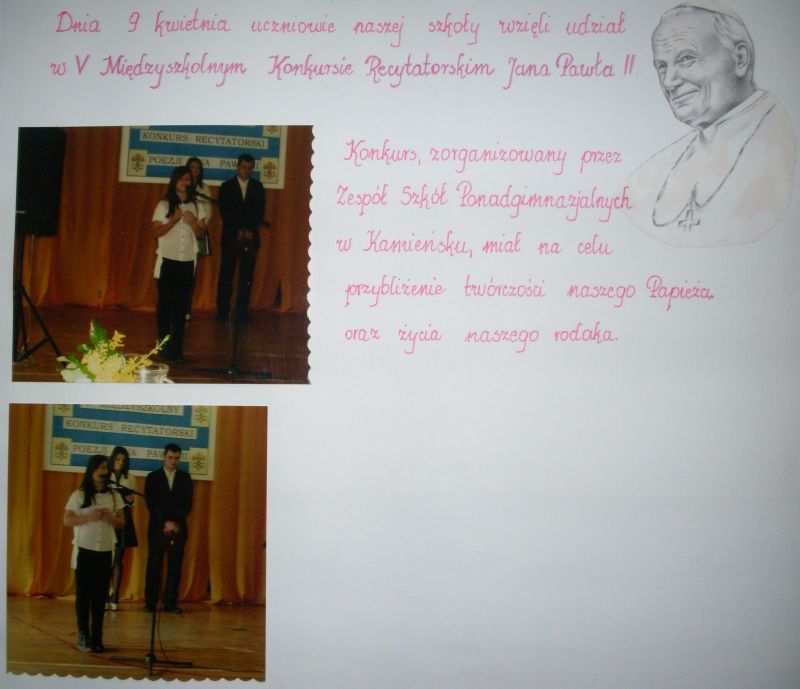 Dnia 9 kwietnia uczniowie naszej szkoły wzięli udział
w V Międzyszkolnym Konkursie Recytatorskim Jana Pawła II.
Konkurs, zorganizowany przez
Zespół Szkół Ponadgimnazjalnych
w Kamieńsku, miał na celu
przybliżenie twórczości naszego Papieża,
oraz życia naszego rodaka.
KONKURS RECYTATORSKI
POEZJI
MIĘDZYSZKOLNY
KONKURS RECYTATORSKI
POEZJI